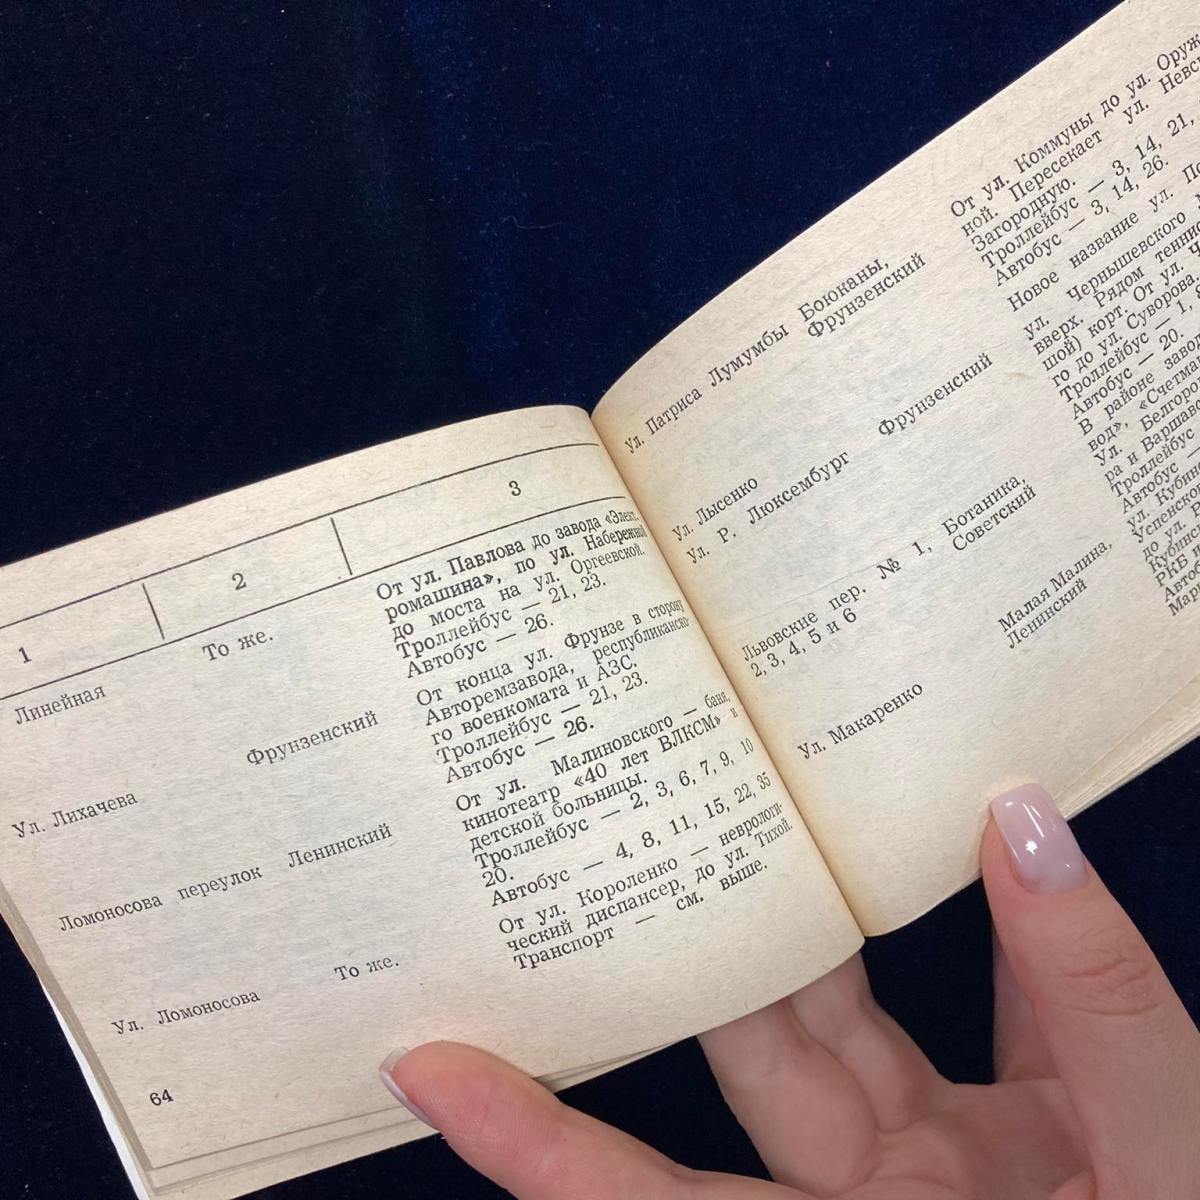 1
2
3
Линейная
То же.
От ул. Павлова до завода «Элект-
ромашина», по ул. Набережной
до моста на ул. Оргеевской.
Троллейбус — 21, 23.
Автобус — 26.
Ул. Лихачева
Фрунзенский
От конца ул. Фрунзе в сторону
Авторемзавода, республиканско-
го военкомата и АЗС.
Троллейбус — 21, 23.
Автобус — 26.
Ломоносова переулок
Ленинский
От ул. Малиновского — баня,
кинотеатр «40 лет ВЛКСМ» и
детской больницы.
Троллейбус — 2, 3, 6, 7, 9, 10
20.
Автобус — 4, 8, 11, 15, 22, 35
Ул. Ломоносова
То же.
От ул. Короленко — неврологи-
ческий диспансер, до ул. Тихой.
Транспорт — см. выше.
64
Ул. Патриса Лумумбы
Боюканы,
Фрунзенский
От ул. Коммуны до ул. Оруж
ной. Пересекает ул. Невс
Загородную.
Троллейбус — 3, 14, 21,
Автобус — 3, 14, 26.
Ул. Лысенко
Новое название ул.
Ул. Р. Люксембург
Фрунзенский
ул. Чернышевского
вверх. Рядом теннис
шой) корт. От ул.
го до ул. Суворова.
Троллейбус — 1,
Автобус — 20
Львовские пер. № 1,
2, 3, 4, 5 и 6
Ботаника,
Советский
В районе завод
вод», «Счетма
Ул. Белгор
ра и Варша
Троллейбус
Автобус —
Ул. Макаренко
Малая Малина,
Ленинский
ул. Кубин
Успенско
до ул.
Кубинс
РКБ
Автоб
Мари